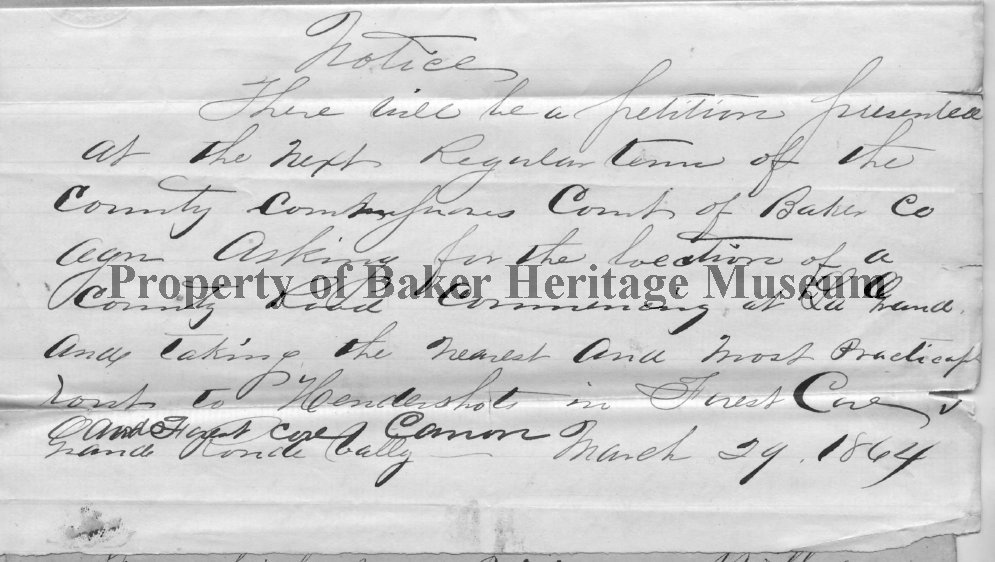 Notice
There will be a petition presented
at the next Regular term of the
County Court of Baker Co
Asking for the location of a
Property of Baker Heritage Museum
County Road Commencing at La Grand
and taking the nearest and most Practical
rout to Hendershots in Forest Cove
and Forest cove Canon
Grande Ronde vally — March 29. 1864